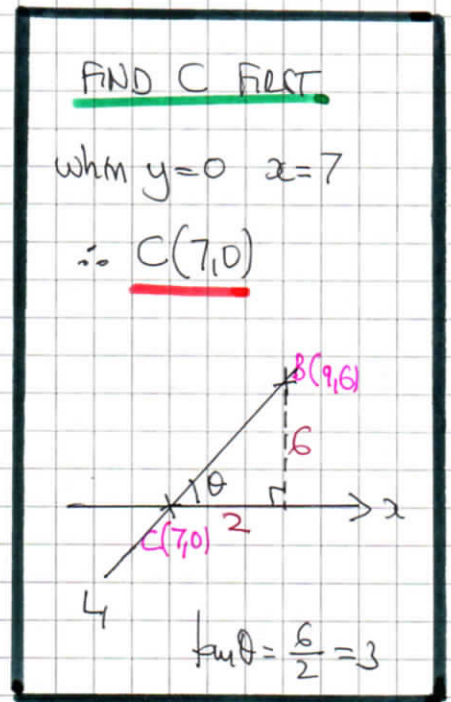 FIND C FIRST
when y=0 x=7
∴ C(7,0)
B(9,6)
6
θ
x
C(7,0)
2
L1
tanθ = 6/2 = 3